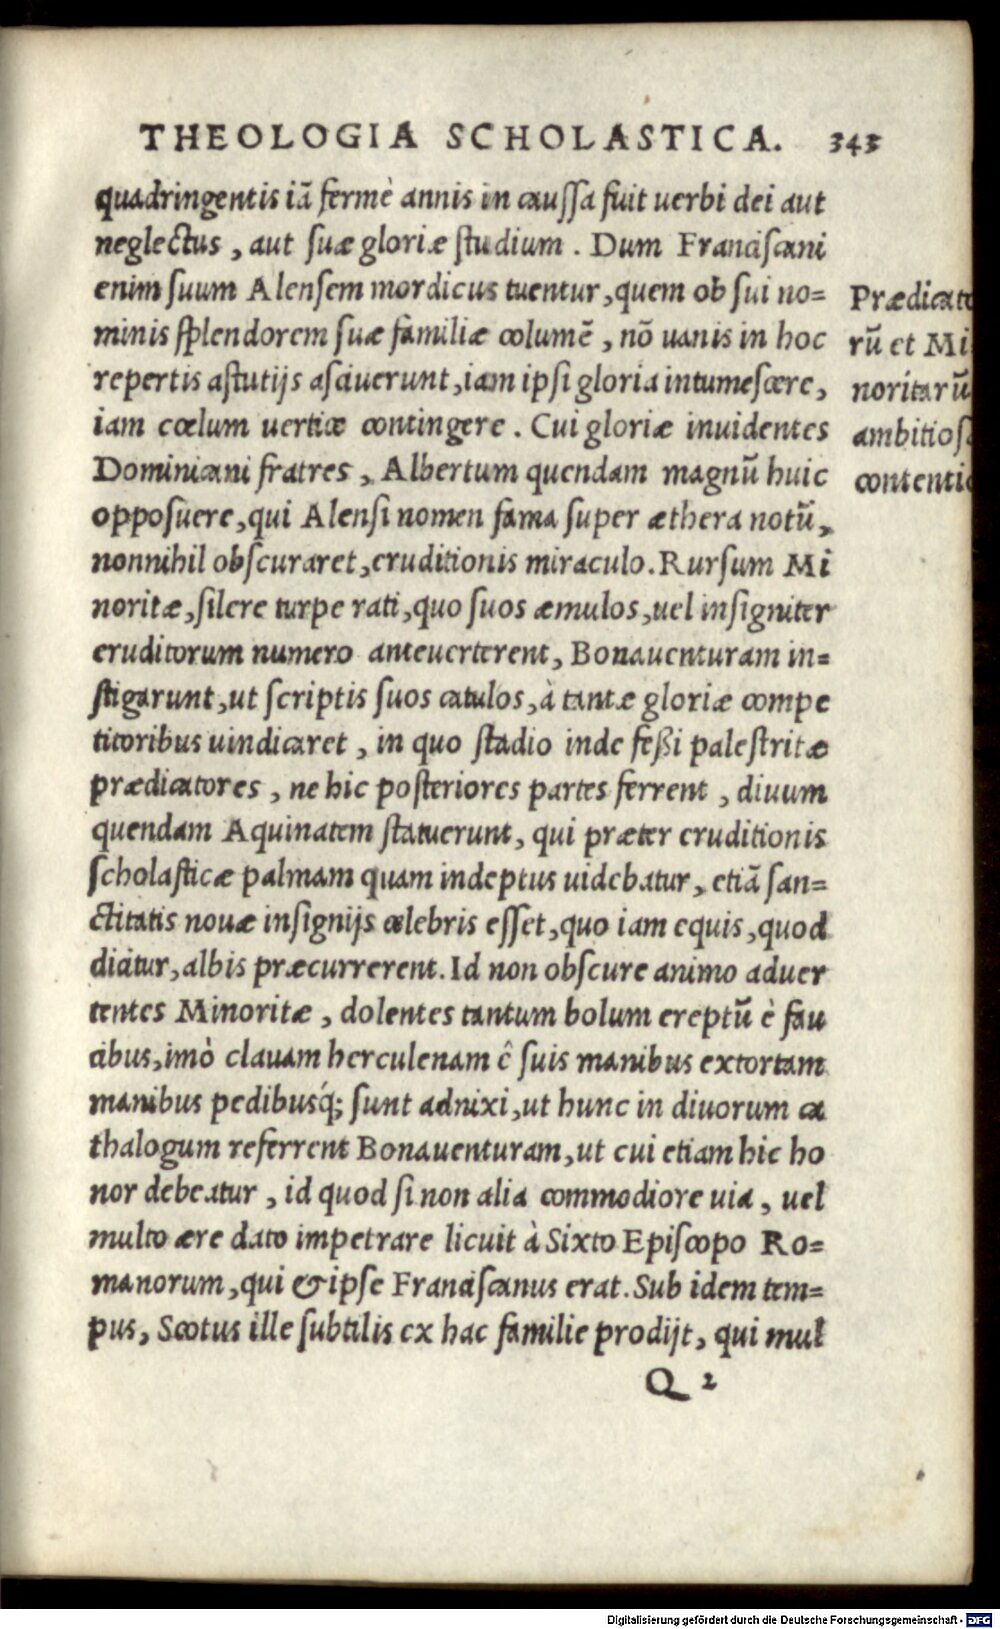 THEOLOGIA SCHOLASTICA. 343
quadringentis iā fermè annis in caussa fuit uerbi dei aut
neglectus, aut suæ gloriæ studium. Dum Franciscani
enim suum Alensem mordicus tuentur, quem ob sui no=
minis splendorem suæ familiæ columē, nō uanis in hoc
repertis astutijs asciuerunt, iam ipsi gloria intumescere,
iam cœlum uertice contingere. Cui gloriæ inuidentes
Dominicani fratres, Albertum quendam magnū huic
opposuere, qui Alensi nomen fama super æthera notū,
nonnihil obscuraret, eruditionis miraculo. Rursum Mi
noritæ, silere turpe rati, quo suos æmulos, uel insigniter
eruditorum numero anteuerterent, Bonauenturam in=
stigarunt, ut scriptis suos catulos, à tantæ gloriæ compe
titoribus uindicaret, in quo stadio inde feßi palestritæ
prædicatores, ne hic posteriores partes ferrent, diuum
quendam Aquinatem statuerunt, qui præter eruditionis
scholasticæ palmam quam indeptus uidebatur, etiā san=
ctitatis nouæ insignijs celebris esset, quo iam equis, quod
dicitur, albis præcurrerent. Id non obscure animo aduer
tentes Minoritæ, dolentes tantum bolum ereptū è fau
cibus, imò clauam herculenam ê suis manibus extortam
manibus pedibusq́; sunt adnixi, ut hunc in diuorum ca
thalogum referrent Bonauenturam, ut cui etiam hic ho
nor debeatur, id quod si non alia commodiore uia, uel
multo ære dato impetrare licuit à Sixto Episcopo Ro=
manorum, qui & ipse Franciscanus erat. Sub idem tem=
pus, Scotus ille subtilis ex hac familie prodijt, qui mul
Q 2
Prædicato
rū et Mi
noritarū
ambitiosa
contentio
Digitalisierung gefördert durch die Deutsche Forschungsgemeinschaft - DFG